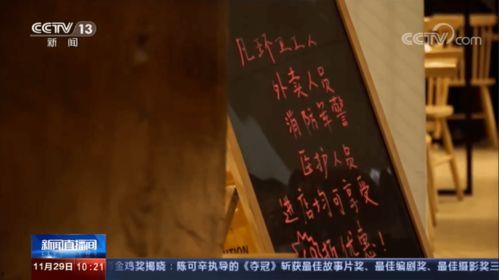 CCTV 13
新闻
CCTV.com
工人
外卖人员
消防军警
医护人员
进店均可享受
折优惠!
CAUTION
新闻直播间
11月29日 10:21
金鸡奖揭晓:陈可辛执导的《夺冠》斩获最佳故事片奖、最佳编剧奖、最佳摄影奖